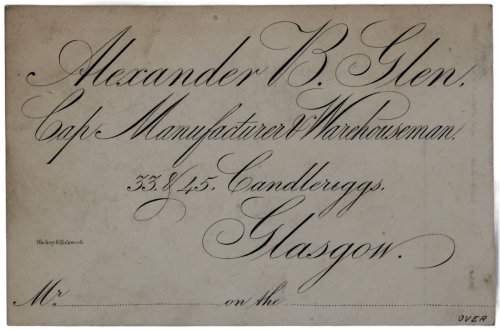 Alexander B. Glen.
Cap Manufacturer & Warehouseman.
33. & 45. Candleriggs.
Glasgow.
Maclay & 
Mr. on the
OVER